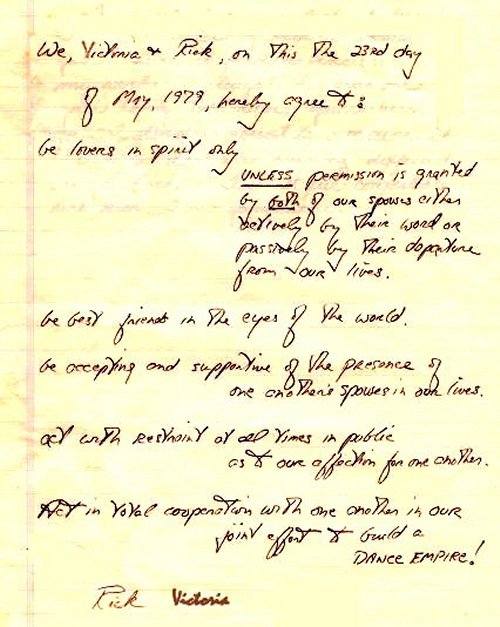 We, Victoria & Rick, on this the 23rd day
of May, 1979, hereby agree to:
be lovers in spirit only
UNLESS permission is granted
by both of our spouses either
actively by their word or
passively by their departure
from our lives.
be best friends in the eyes of the world.
be accepting and supportive of the presence of
one another's spouses in our lives.
act with restraint at all times in public
as to our affection for one another.
Act in total cooperation with one another in our
joint effort to build a
DANCE EMPIRE!
Rick Victoria